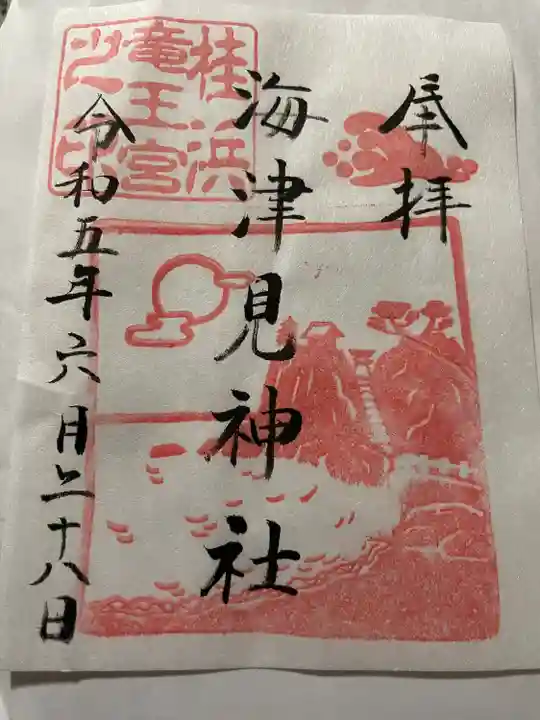 奉拝
海津見神社
桂浜
竜王宮
之印
令和五年六月二十八日